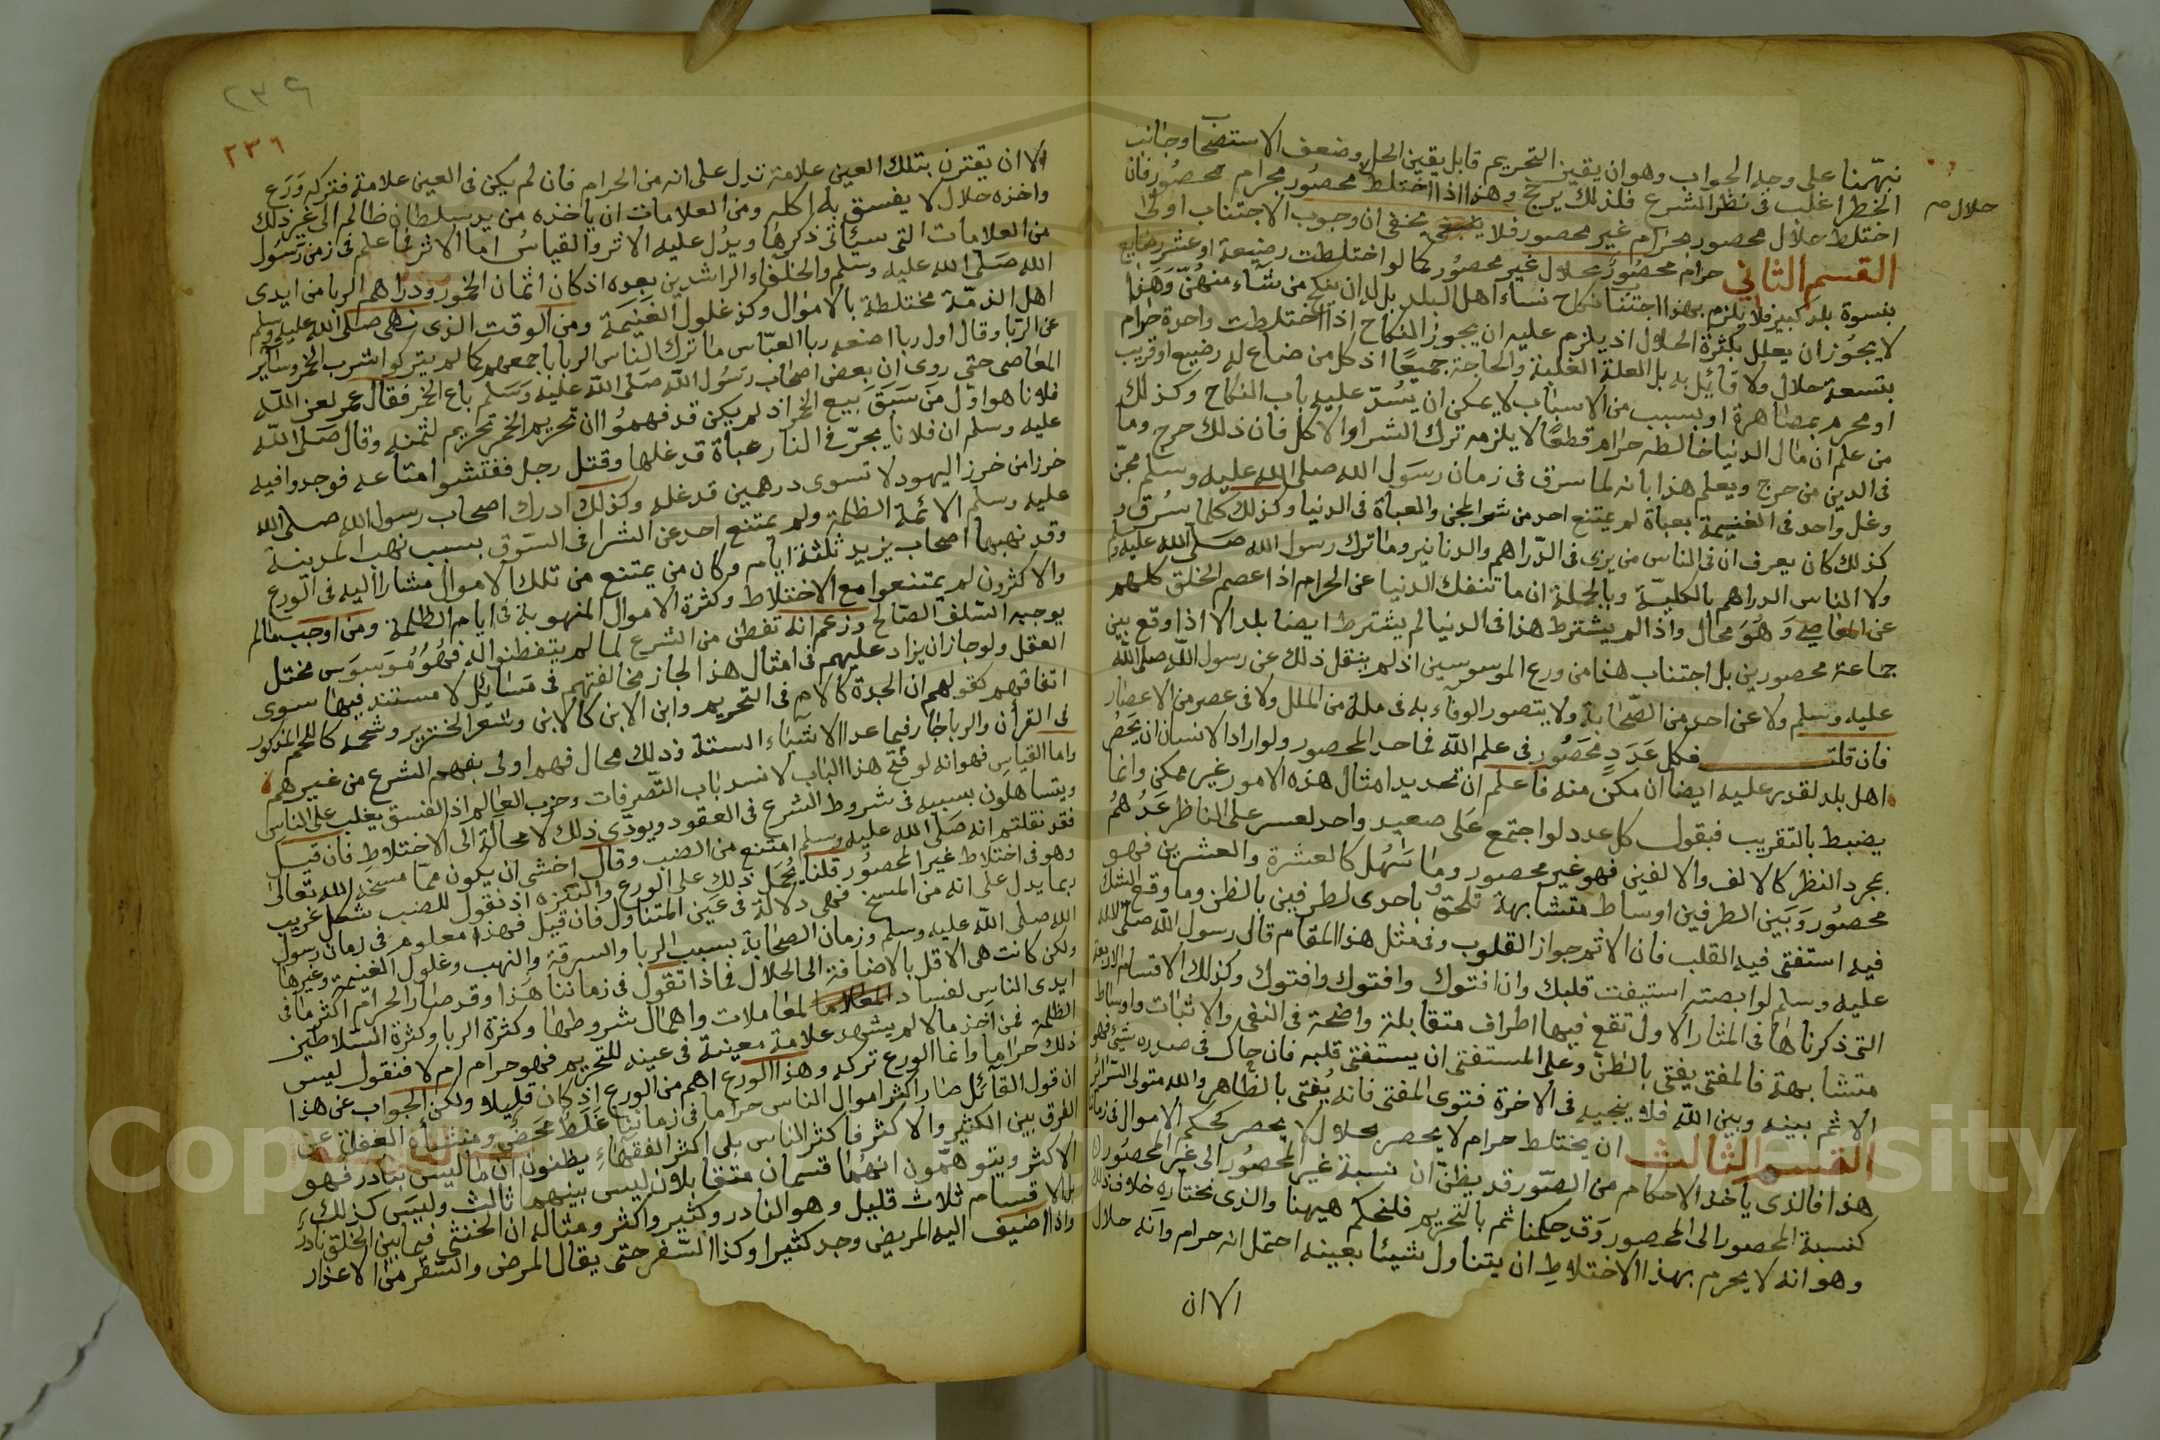 نبهّنا على وجه الجواب وهو ان يقين التحريم قابل يقين الحل وضعف الاستصحاب وجانب
الخطر اغلب فى نظر الشرع فلذلك يرجح وهذا اذا اختلط محصور بحرام محصور فان
حلال صح
اختلط حلال محصور بحرام غير محصور فلا يخفى ان وجوب الاجتناب اولى
القسم الثاني حرام محصور بحلال غير محصور كما لو اختلطت رضيعة او عشر رضايع
بنسوة بلد كبير فلا يلزم بهذا اجتناب نكاح نساء اهل البلد بل له ان ينكح من شاء منهنّ وهذا
لا يجوز ان يعلل بكثرة الحلال اذ يلزم عليه ان يجوز النكاح اذا اختلطت واحدة حرام
بتسعة حلال ولا قائل به بل العلة الغلبة والحاجة جميعًا اذ كل من ضاع له رضيع او قريب
او محرم بمصاهرة او بسبب من الاسباب لا يمكن ان يُسدّ عليه باب النكاح وكذلك
من علم ان مال الدنيا خالطه حرام قطعًا لا يلزمه ترك الشراوالاكل فان ذلك حرج وما
فى الدين من حرج ويعلم هذا بانه لما سرق فى زمان رسول الله صلى الله عليه وسلم مجنّ
وغل واحد فى الغنيمة بعباة لم يمتنع احد من شرا المجن والعباة فى الدنيا وكذلك كلما سُرق و
كذلك كان يعرف ان فى الناس من يربى فى الدّراهم والدنانير وما ترك رسول الله صلى الله عليه وسلم
ولا الناس الدراهم بالكليّة وبالجملة ان ما تنفك الدنيا عن الحرام اذا عصم الخلق كلهم
عن المعاصى وهُوَ محال واذا لم يشترط هذا فى الدنيا لم يشترط ايضا بلد الا اذا وقع بين
جماعة محصورين بل اجتناب هذا من ورع الموسوسين اذ لم ينقل ذلك عن رسول الله صلى الله
عليه وسلم ولا عن احد من الصّحابة ولا يتصور الوفاء به فى ملة من الملل ولا فى عصر من الاعصار
فان قلت فكل عَدَدٍ محصُور فى علم الله فما حد المحصور ولو اراد الانسان ان يحصُر
اهل بلد لقدر عليه ايضا ان مكن منه فاعلم ان تحديد امثال هذه الامور غير ممكن وانما
يضبط بالتقريب فنقول كل عدد لو اجتمع على صعيد واحد لعسر على الناظر عَدُهمُ
بمجرد النظر كالالف والالفين فهو غير محصور وما سَهُل كالعشرة والعشرين فهو
محصُور وَبين الطرفين اوساط متشابهة تلحق باحدى لطرفين بالظن وما وقع الشك
فيه استفتى فيه القلب فان الاثم حواز القلوب وفى مثل هذا المقام قال رسول الله صلى الله
عليه وسلم لوابصته استفت قلبك وان افتوك وافتوك وافتوك وكذلك الاقسام الاربعة
التى ذكرناها فى المثار الاول تقع فيها اطراف متقابلة واضحة فى النفى والاثبات واوساط
متشابهة فالمفتى يفتى بالظنّ وعلى المستفتى ان يستفتى قلبه فان حاك فى صدره شيئ فهو
الاثم بينه وبين الله فلا ينجيه فى الاخرة فتوى المفتى فانه يُفتى بالظاهر والله متولى السّرائر
القسم الثالث ان يختلط حرام لا يحصر بحلال لا يحصر كحكم الاموال فى زماننا
هذا فالذى ياخذ الاحكام من الصّور قد يظنّ ان نسبة غير المحصُور الى غير المحصور
كنسبة المحصور الى المحصور وقد حكمنا ثم بالتحريم فلنحكم هيهنا والذى نختاره خلاف ذلك
وهو انه لا يحرم بهذا الاختلاط ان يتناول شيئا بعينه احتمل انه حرام وانه حلال
الا ان
٢٣٦
٢٣٦
الا ان يقترن بتلك العين علامة تدل على انه من الحرام فان لم يكن فى العين علامة فتركه وَرَع
واخذه حلال لا يفسق به اكله ومن العلامات ان ياخذه من يد سلطان ظالم الى غير ذلك
من العلامات التى سيأتى ذكرها ويدُل عليه الاثر والقياسُ اما الاثر فما علم فى زمن رَسُول
الله صَلى الله عليه وسلم والخلفاء الراشدين بعده اذ كان اثمان الخمور ودراهم الربا من ايدى
اهل الذمّة مختلطة بالاموال وكذ غلول الغنيمة ومن الوقت الذى نهى صلى الله عليه وسلم
عن الرّبا وقال اول ربا اضعه ربا العبّاس ما ترك النّاس الربا باجمعهم كما لم يتركوا شرب الخمر وسائر
المعاصى حتى روى ان بعض اصحاب رَسُول الله صَلى الله عليه وَسَلم باع الخمر فقال عمر لعن الله
فلانا هو اوّل من سَبَقَ بيع الخمر اذ لم يكن قد فهموُا ان تحريم الخمر تحريم لثمنه وقال صَلى الله
عليه وسلم ان فلانا يجرّ فى النار عباة قد غلها وقتل رجل ففتشوا متاعه فوجدوا فيه
خرزا من خرز اليهود لا تسوى درهمين قد غله وكذلك ادرك اصحاب رسول الله صلى الله
عليه وسلم الائمة الظلمة ولم يمتنع احد عن الشرا فى السّوق بسبب نهب المدينة
وقد نهبها اصحاب يزيد ثلثة ايام وكان من يمتنع من تلك الاموال مشارا اليه فى الورع
والاكثرون لم يمتنعوا مع الاختلاط وكثرة الاموال المنهوبة فى ايام الظلمة ومن اوجب ما لم
يوجبه السّلف الصّالح وزعم انه تفطن من الشرع لما لم يتفطنوا له فهُوُ مُوَسوَس مختل
العقل ولو جاز ان يزاد عليهم فى امثال هذا لجاز مخالفتهم فى مسايل لا مستند فيها سوى
اتفاقهم كقولهم ان الجدة كالام فى التحريم وابن الابن كالابن وشعر الخنزير وشحمه كاللحم المذكور
فى القرأن والربا جار فيما عدا الاشياء الستة وذلك محال فهم اولى بفهم الشرع من غيرهم
واما القياس فهو انه لو فتح هذا الباب لانسد باب التّصرفات وخرب العالم اذ الفسق يغلب على الناس
ويتساهلون بسببه فى شروط الشرع فى العقود ويودّى ذلك لا محالة الى الاختلاط فان قيل
فقد نقلتم انه صَلى الله عليه وسلم امتنع من الضب وقال اخشى ان يكون ممّا مسخه الله تعالى
وهو فى اختلاط غير المحصُور قلنا يُحمَل ذلك على الورع والتنزه اذ نقول للضب شكل غريب
ربما يدل على انه من المسخ فهى دلالة فى عين المتناول فان قيل فهذا معلوم فى زمان رسول
الله صلى الله عليه وسلم وزمان الصحابة بسبب الربا والسرقة والنهب وغلول الغنيمة وغيرها
ولكن كانت هى الاقل بالاضافة الى الحلال فماذا تقول فى زماننا هذا وقد صار الحرام اكثر ما فى
ايدى الناس لفساد المعاملات واهمال شروطها وكثرة الربا وكثرة السّلاطين
الظلمة فمن اخذ مالا لم يشهد علامة معينة فى عينه للتحريم فهو حرام ام لا فنقول ليس
ذلك حراما وانما الورع تركه وهذا الورع اهم من الورع اذ كان قليلا ولكن الجواب عن هذا
ان قول القائل صار اكثر اموال الناس حراما فى زماننا غَلَطٌ مَحَضٌ ومنشأه الغفلة عن
الفرق بين الكثير والاكثر فاكثر الناس بلى اكثر الفقهاءِ يظنون ان ما ليس بنادر فهو
الاكثر ويتوهّمون انهما قسمان متقابلان ليس بينهما ثالث وليسَ كذلك
بل الاقسام ثلاث قليل وهو النادر وكثير واكثر ومثاله ان الخنثى فيما بين الخلق نادر
واذا اضيف اليه المريض وجد كثيرا وكذا السّفر حتى يقال المرض والسّفر من الاعذار
Copyright © King Saud University